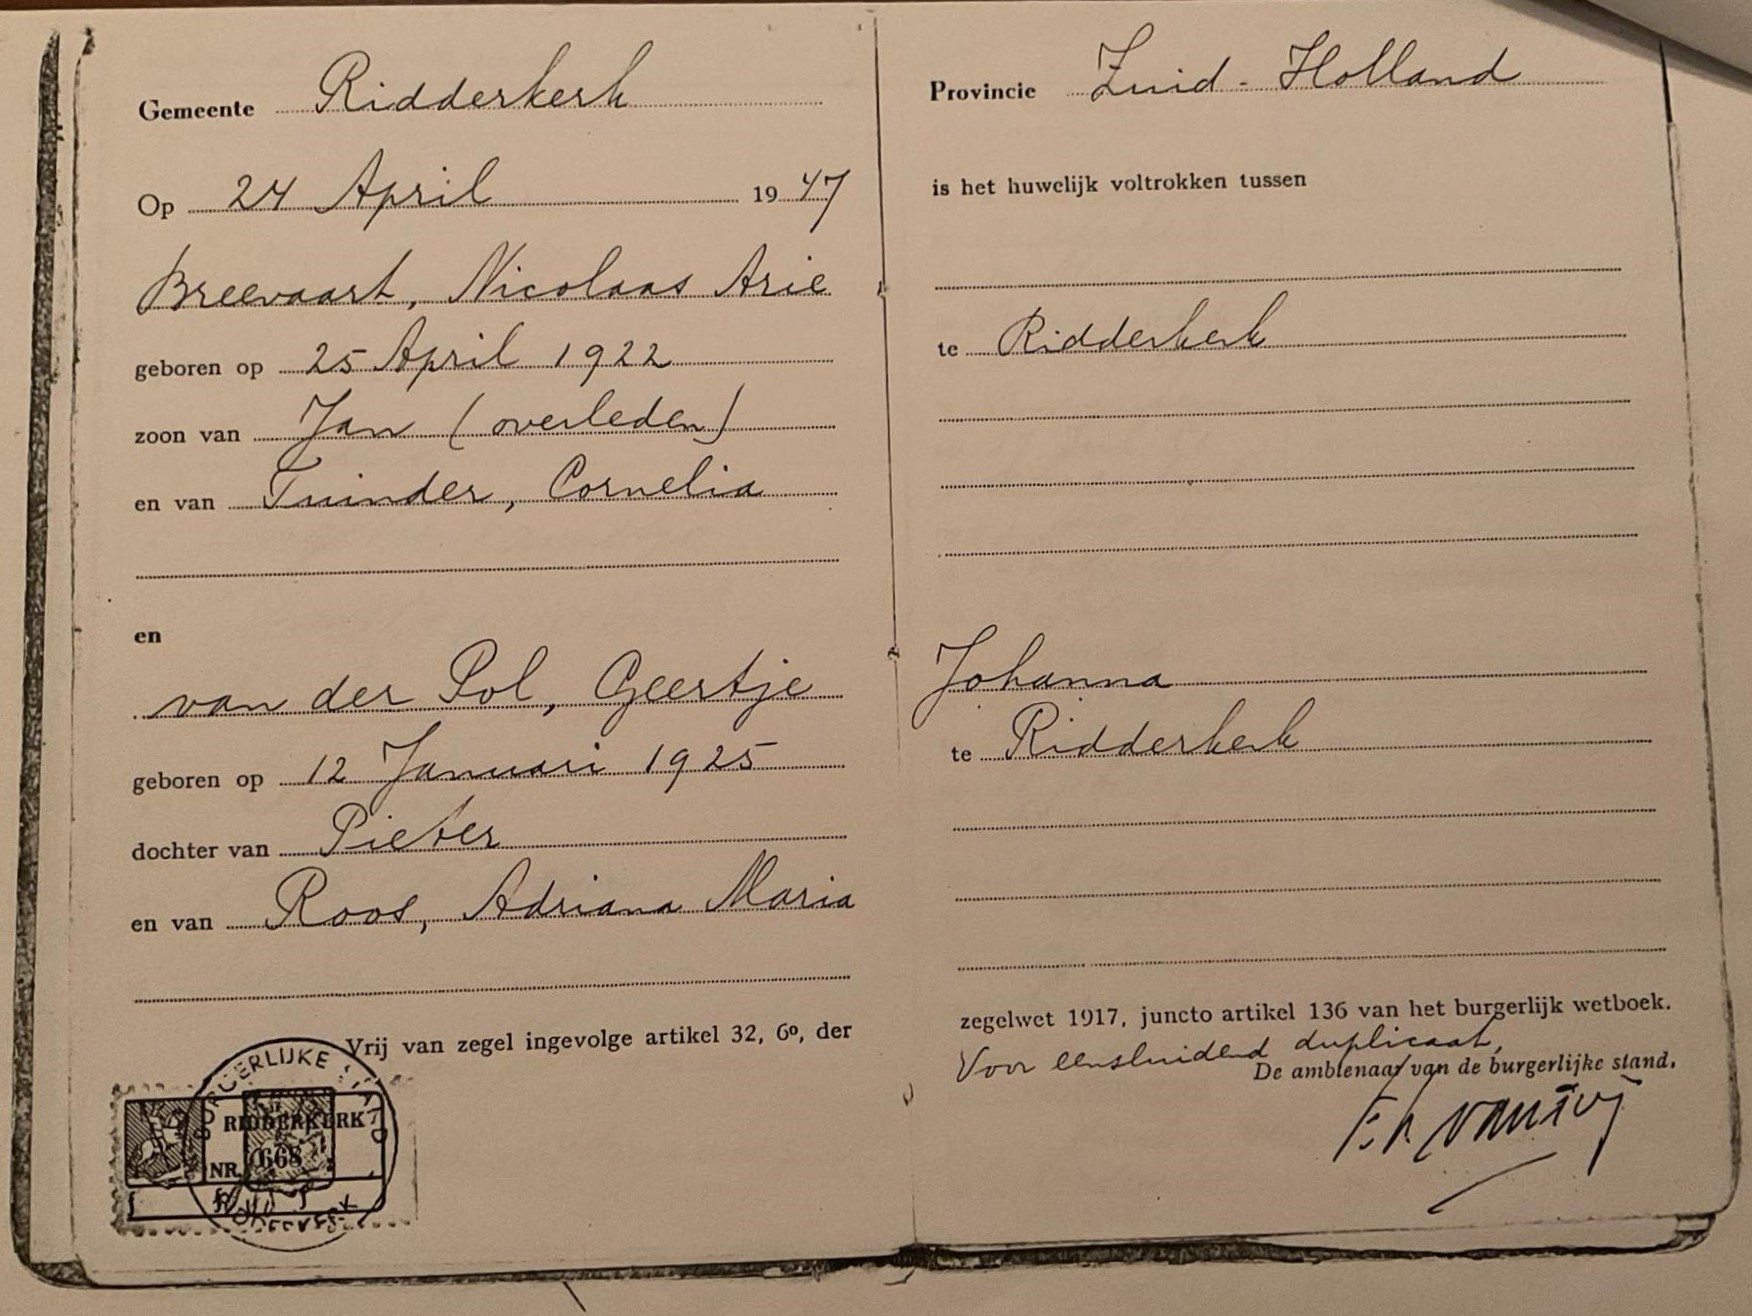 Gemeente Ridderkerk
Op 24 April 1947
Breevaart, Nicolaas Arie
geboren op 25 April 1922
zoon van Jan (overleden)
en van Tuinder, Cornelia
en
van der Pol, Geertje
geboren op 12 Januari 1925
dochter van Pieter
en van Roos, Adriana Maria
Vrij van zegel ingevolge artikel 32, 6º, der
BURGERLIJKE STAND
RIDDERKERK
NR 668
Provincie Zuid-Holland
is het huwelijk voltrokken tussen
te Ridderkerk
Johanna
te Ridderkerk
zegelwet 1917, juncto artikel 136 van het burgerlijk wetboek.
Voor eensluidend duplicaat,
De ambtenaar van de burgerlijke stand,